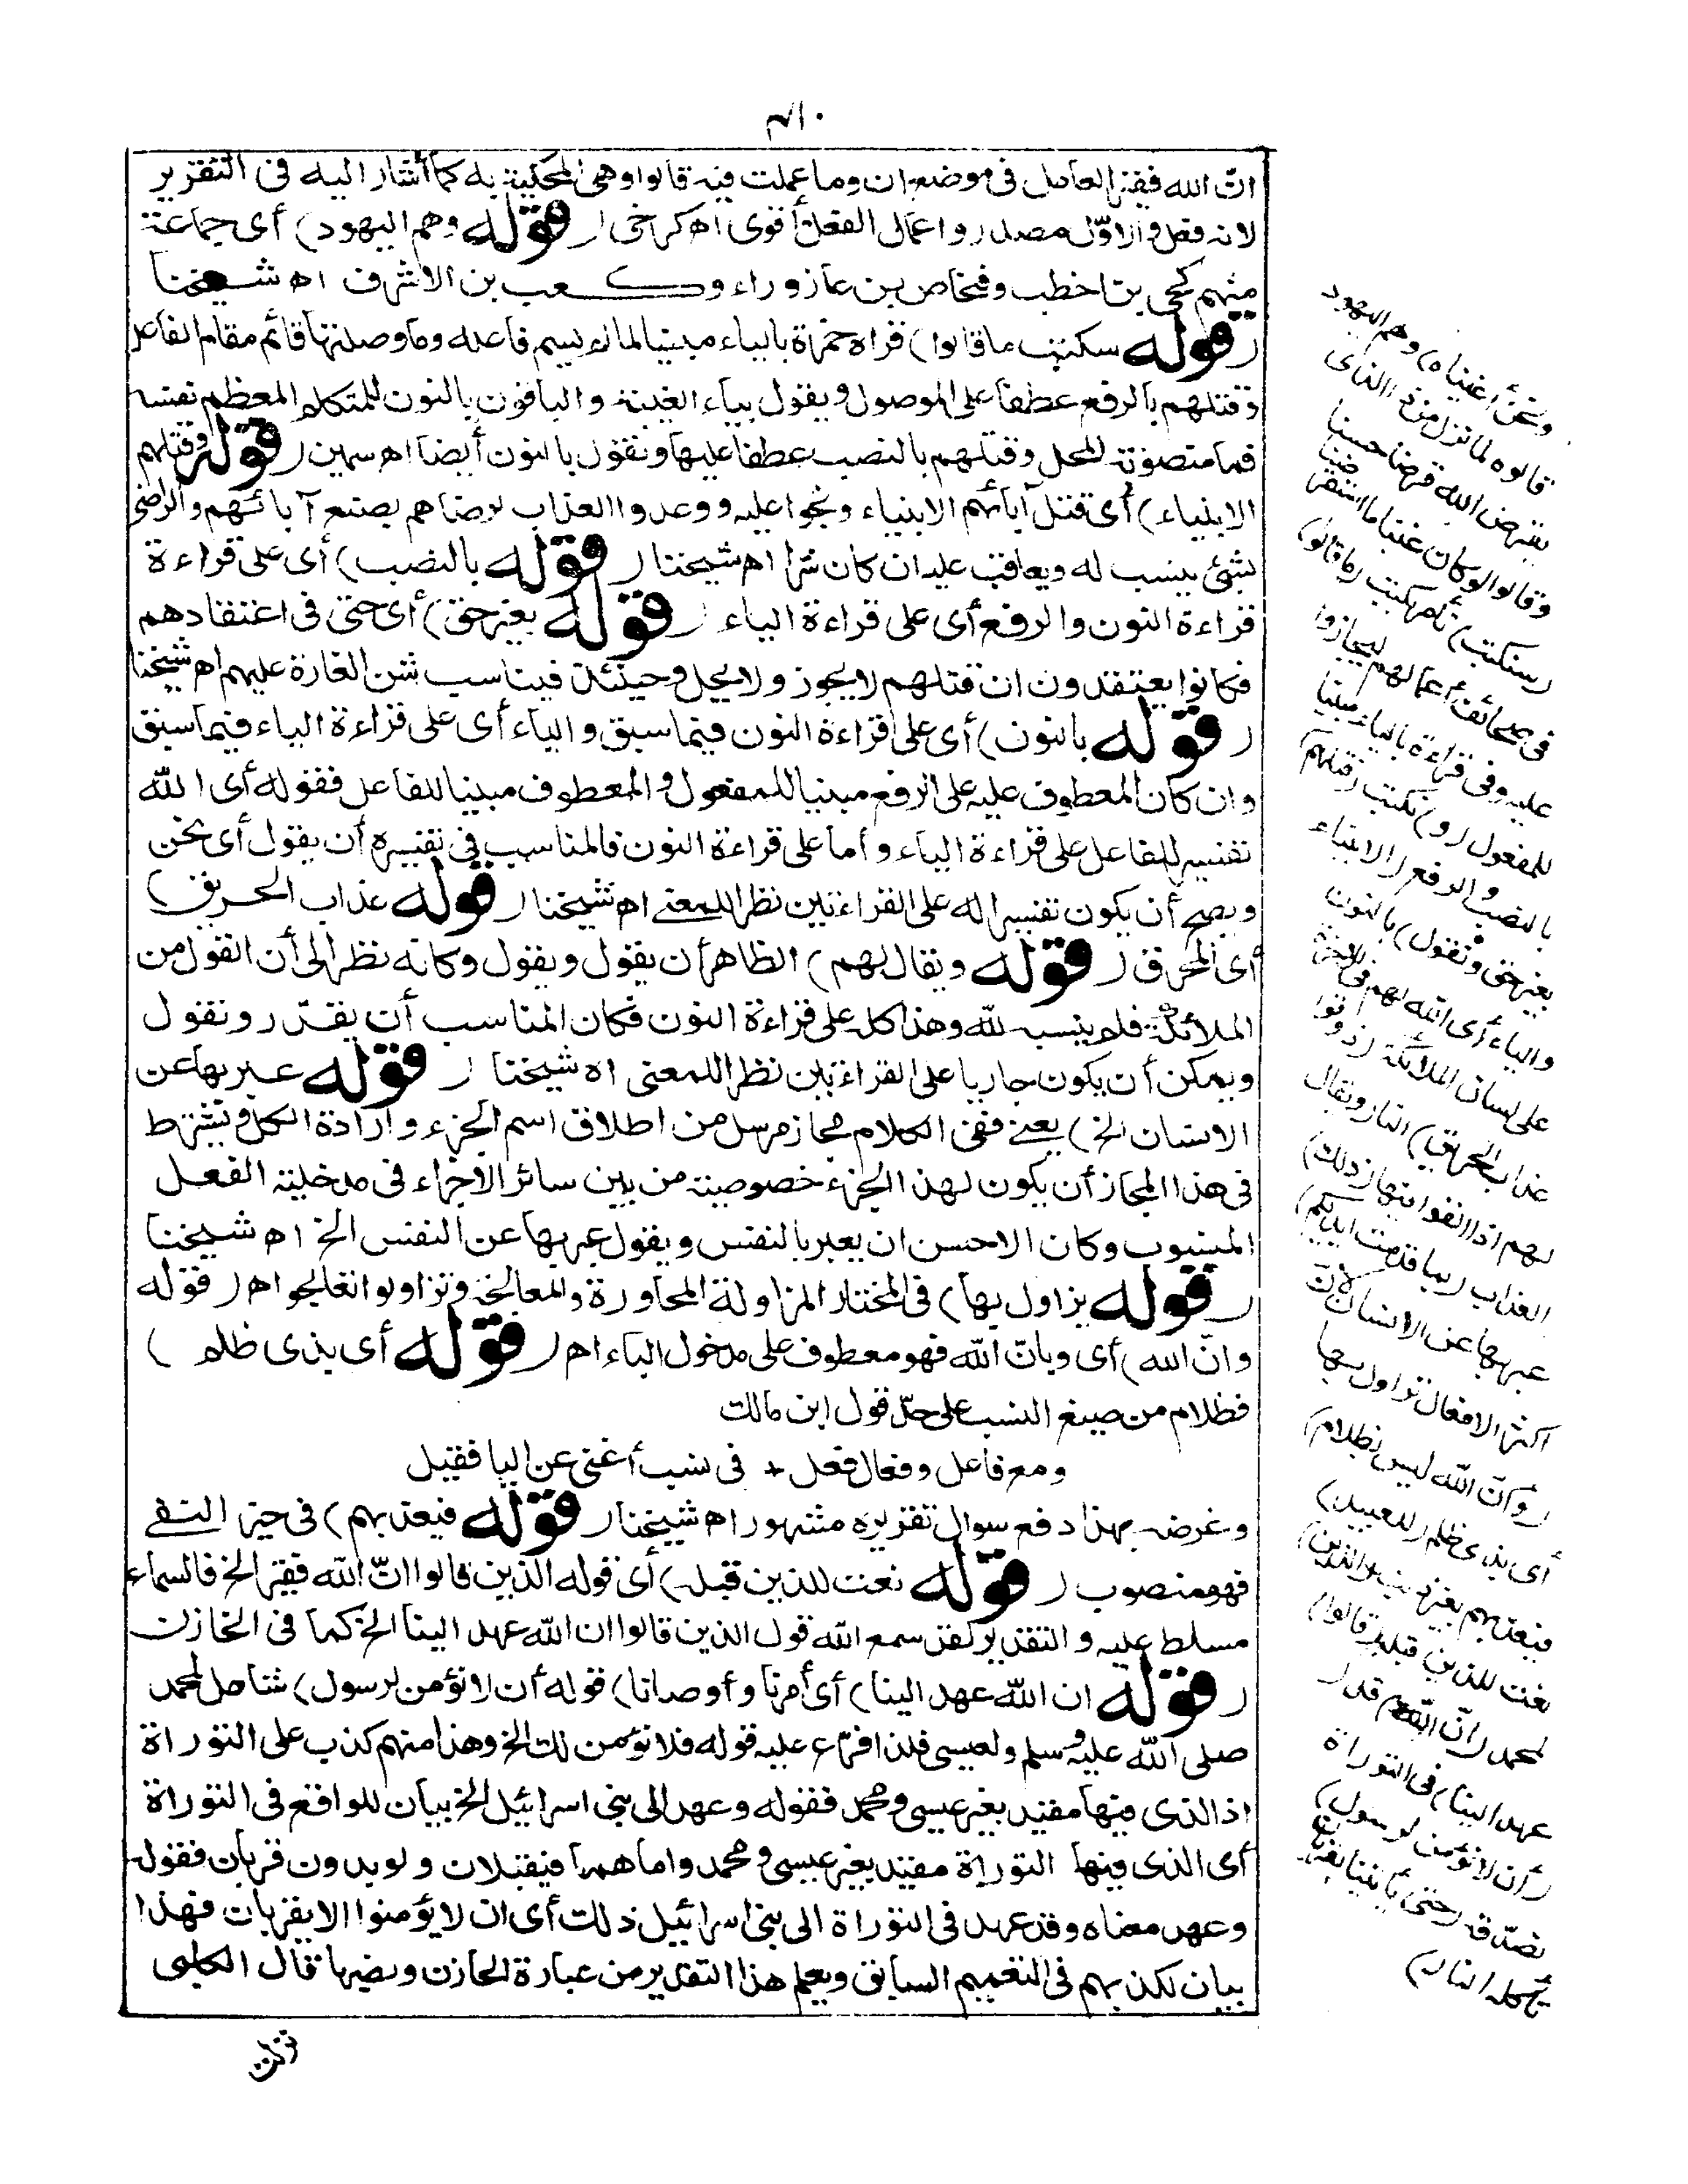 انّ الله فقير العامل فى موضع ان وما عملت فيه قالوا وهى المحكية به كما أشار اليه فى التقرير
لانه فعل والاوّل مصدر واعمال الفعل أقوى اه كرخى (قوله وهم اليهود) أى جماعة
منهم كحيى بن اخطب وفنحاص بن عازوراء وكعب بن الاشرف اه شيخنا
(قوله سنكتب ما قالوا) قرأه حمزة بالياء مبنيا لما لم يسم فاعله وما وصلتها قائم مقام الفاعل
وقتلهم بالرفع عطفا على الموصول ويقول بياء الغيبة والباقون بالنون للمتكلم المعظم نفسه
فما منصوبة المحل وقتلهم بالنصب عطفا عليها ونقول بالنون أيضا اه سمين (قوله وقتلهم
الانبياء) أى قتل آبائهم الانبياء ووعدوا العذاب لرضاهم بصنع آبائهم والراضى
بشئ ينسب له ويعاقب عليه ان كان شرا اه شيخنا (قوله بالنصب) أى على قراءة
قراءة النون والرفع أى على قراءة الياء (قوله بغير حق) أى حتى فى اعتقادهم
فكانوا يعتقدون ان قتلهم لا يجوز ولا يحل وحينئذ فيناسب شن الغارة عليهم اه شيخنا
(قوله بالنون) أى على قراءة النون فيما سبق والياء أى على قراءة الياء فيما سبق
وان كان المعطوف عليه على الرفع مبنيا للمفعول والمعطوف مبنيا للفاعل فقوله أى الله
تفسير للفاعل على قراءة الياء وأما على قراءة النون فالمناسب فى تفسيره أن يقول أى نحن
ويصح أن يكون تفسيرا له على القراءتين نظرا للمعنى اه شيخنا (قوله عذاب الحريق)
أى المحرق (قوله ويقال لهم) الظاهر أن يقول ويقول وكانه نظر الى أن القول من
الملائكة فلم ينسب لله وهذا كله على قراءة النون فكان المناسب أن يقدّر ونقول
ويمكن أن يكون جاريا على القراءتين نظرا للمعنى اه شيخنا (قوله عبر بها عن
الانسان الخ) يعنى ففى الكلام مجاز مرسل من اطلاق اسم الجزء وارادة الكل ويشترط
فى هذا المجاز أن يكون لهذا الجزء خصوصية من بين سائر الاجزاء فى مدخلية الفعل
المنسوب وكان الاحسن ان يعبر بالنفس ويقول عبر بها عن النفس الخ اه شيخنا
(قوله يزاول بها) فى المختار المزاولة المحاورة والمعالجة وتزاولوا تعالجوا اه (قوله
وانّ الله) أى وبانّ الله فهو معطوف على مدخول الباء اه (قوله أى بذى ظلم)
فظلام من صيغ النسب على حدّ قول ابن مالك
ومع فاعل وفعال فعل + فى نسب أغنى عن اليا فقبل
وغرضه بهذا دفع سوال تقريره مشهور اه شيخنا (قوله فيعذبهم) فى حيز النفى
فهو منصوب (قوله نعت للذين قبله) أى قوله الذين قالوا انّ الله فقير الخ فالسماء
مسلط عليه والتقدير لقد سمع الله قول الذين قالوا ان الله عهد الينا الخ كما فى الخازن
(قوله ان الله عهد الينا) أى أمرنا وأوصانا) قوله أن لا نؤمن لرسول) شامل لمحمد
صلى الله عليه وسلم ولعيسى فلذا فرّع عليه قوله فلا نؤمن لك الخ وهذا منهم كذب على التوراة
اذ الذى فيها مقيد بغير عيسى ومحمد فقوله وعهد الى بنى اسرائيل الخ بيان للواقع فى التوراة
أى الذى فيها التوراة مقيد بغير عيسى ومحمد واما هما فيقبلان ولو بدون قربان فقوله
وعهد معناه وقد عهد فى التوراة الى بنى اسرائيل ذلك أى ان لا يؤمنوا الا بقربان فهذا
بيان لكذبهم فى التعميم السابق ويعلم هذا التقرير من عبارة الخازن ونصها قال الكلبى
ونحن أغنياء) وهم اليهود
قالوه لما نزل من ذا الذى
يقرض الله قرضا حسنا
وقالوا لو كان غنيا ما استقرضنا
(سنكتب) نأمر بكتب (ما قالوا)
فى صحائف أعمالهم ليجازوا
عليه وفى قراءة بالياء مبنيا
للمفعول (و) نكتب (قتلهم)
بالنصب والرفع (الانبياء
بغير حق ونقول) بالنون
والياء أى الله لهم فى الآخرة
على لسان الملائكة (ذوقوا
عذاب الحريق) النار ويقال
لهم اذا القوا فيها (ذلك)
العذاب (بما قدمت أيديكم)
عبر بها عن الانسان لان
اكثر الافعال تزاول بها
(وأنّ الله ليس بظلام)
أى بذى ظلم (للعبيد)
فيعذبهم بغير ذنب (الذين)
نعت للذين قبله (قالوا)
لمحمد (انّ الله) قد (
عهد الينا) فى التوراة
(أن لا نؤمن لرسول)
نصدّقه (حتى يأتينا بقربان
تأكله النار)